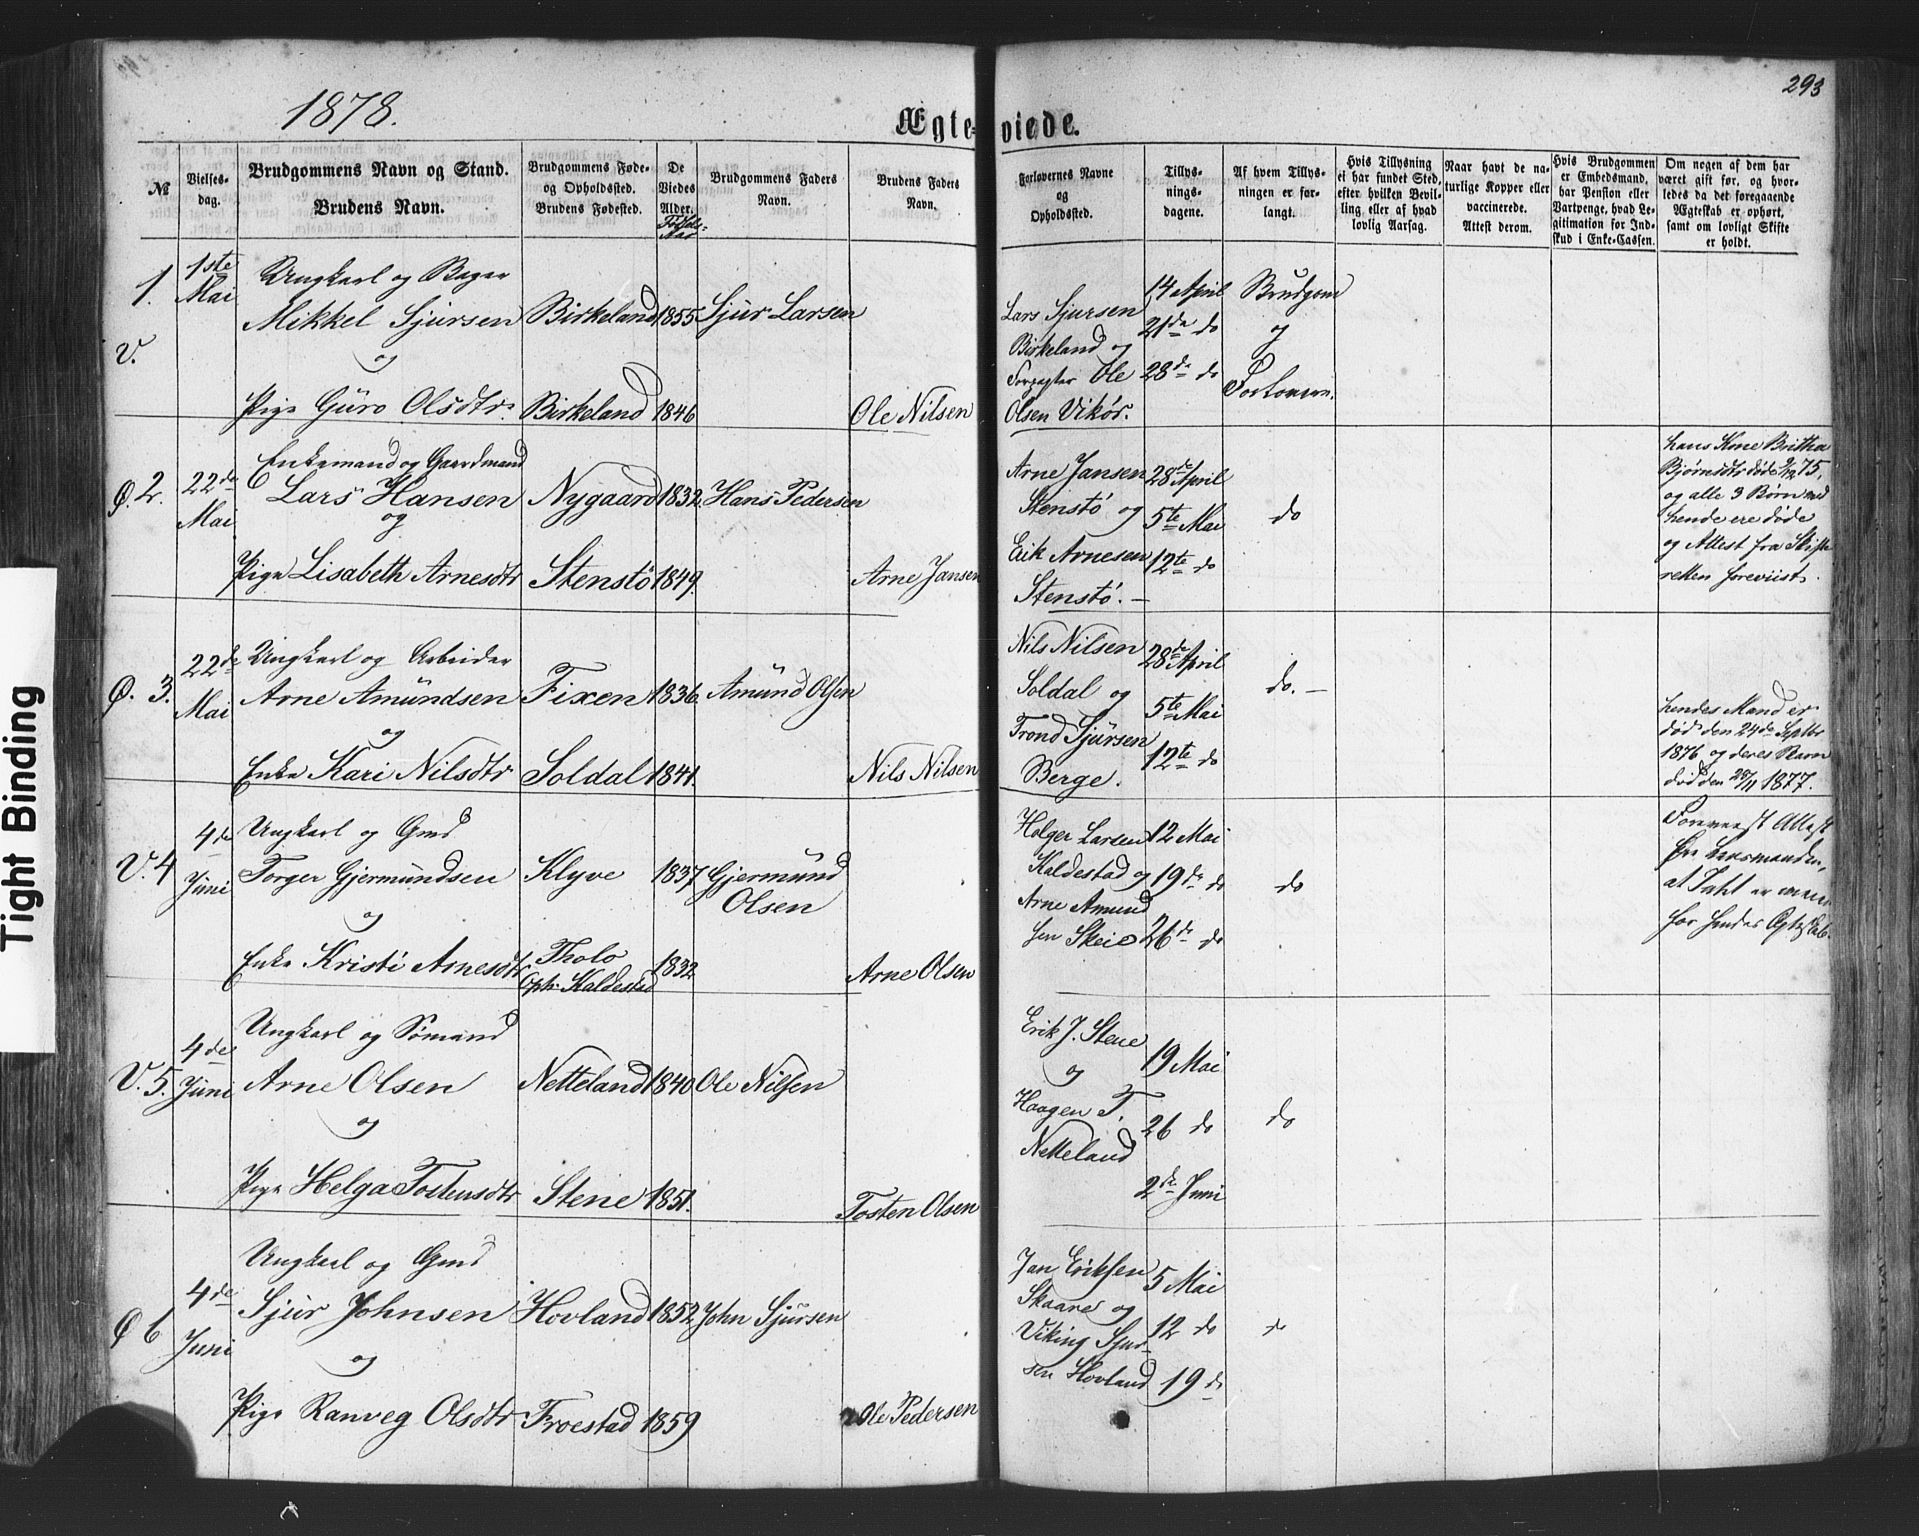 293
1878.
Ægteviede.
№
Vielses-
dag.
Brudgommens Navn og Stand.
Brudens Navn.
Brudgommens Føde-
og Opholdssted.
Brudens Fødested.
De
Viedes
Alder.
Fødsels-
Aar
Brudgommens Faders
Navn.
Brudens Faders
Navn.
Forlovernes Navne
og
Opholdssted.
Tillys-
nings-
dagene.
Af hvem Tillys-
ningen er for-
langt.
Hvis Tillysning
ei har fundet Sted,
efter hvilken Bevil-
ling, eller af hvad
lovlig Aarsag.
Naar havt de na-
turlige Kopper eller
vaccinerede.
Attest derom.
Hvis Brudgommen
er Embedsmand,
har Pension eller
Vartpenge, hvad Le-
gitimation for Ind-
skud i Enke-Cassen.
Om nogen af dem har
været gift før, og hvor-
ledes da det foregaaende
Ægteskab er ophørt,
samt om lovligt Skifte
er holdt.
1.
V.
1ste
Mai
Ungkarl og Bager
Mikkel Sjursen
og
Pige Guro Olsdtr.
Birkeland
Birkeland
1855
1846
Sjur Larsen
Ole Nilsen
Lars Sjursen
Birkeland og
Forpagter Ole
Olsen Vikör.
14 April
21de do
28de do
Brudgom
og
Forlovern.
Ø. 2.
22de
Mai
Enkemand og Gaardmand
Lars Hansen
og
Pige Lisabeth Arnesdtr
Nygaard
Stenstö
1832
1849.
Hans Pedersen
Arne Jansen
Arne Jansen
Stenstö og
Erik Arnesen
Stenstö.
28de April
5te Mai
12te do
do
hans Kone Brittha
Bjørnsdtr døde 9/12 75,
og alle 3 Børn med
hende ere døde
og Attest fra Skifte
retten foreviist.
Ø. 3.
22de
Mai
Ungkarl og Arbeider
Arne Amundsen
og
Enke Kari Nilsdtr
Fixen
Soldal
1836
1841.
Amund Olsen
Nils Nilsen
Nils Nilsen
Soldal og
Trond Sjursen
Berge.
28de April
5te Mai
12te do
do.
hendes Mand er
død den 24de Septbr
1876 og deres Barn
død den 28/11 1877.
V. 4
4de
Juni
Ungkarl og Gmd
Torger Gjermundsen
og
Enke Kristi Arnesdtr
Klyve
Tholo
Oph. Kaldestad
1837
1832
Gjermund
Olsen
Arne Olsen
Holger Larsen
Kaldestad og
Arne Amund
sen Skeie
12 Mai
19 de do
26 de do
do
Foreveist Attest
fra Lensmanden,
at Intet er
for hendes Ægteskab.
V. 5.
4de
Juni
Ungkarl og Sømand
Arne Olsen
og
Pige Helga Tostensdtr
Netteland
Stene
1840
1851.
Ole Nilsen
Tosten Olsen
Erik J. Stene
og
Haagen T.
Netteland
19 Mai
26 do
2de Juni
do
Ø 6
4de
Juni
Ungkarl og Gmd
Sjur Johnsen
og
Pige Ranveg Olsdtr
Hovland
Froestad
1852
1859
John Sjursen
Ole Pedersen
Jan Eriksen
Skaare og
Viking Sjur-
sen Hovland
5 Mai
12 do
19 do
do
Tight Binding